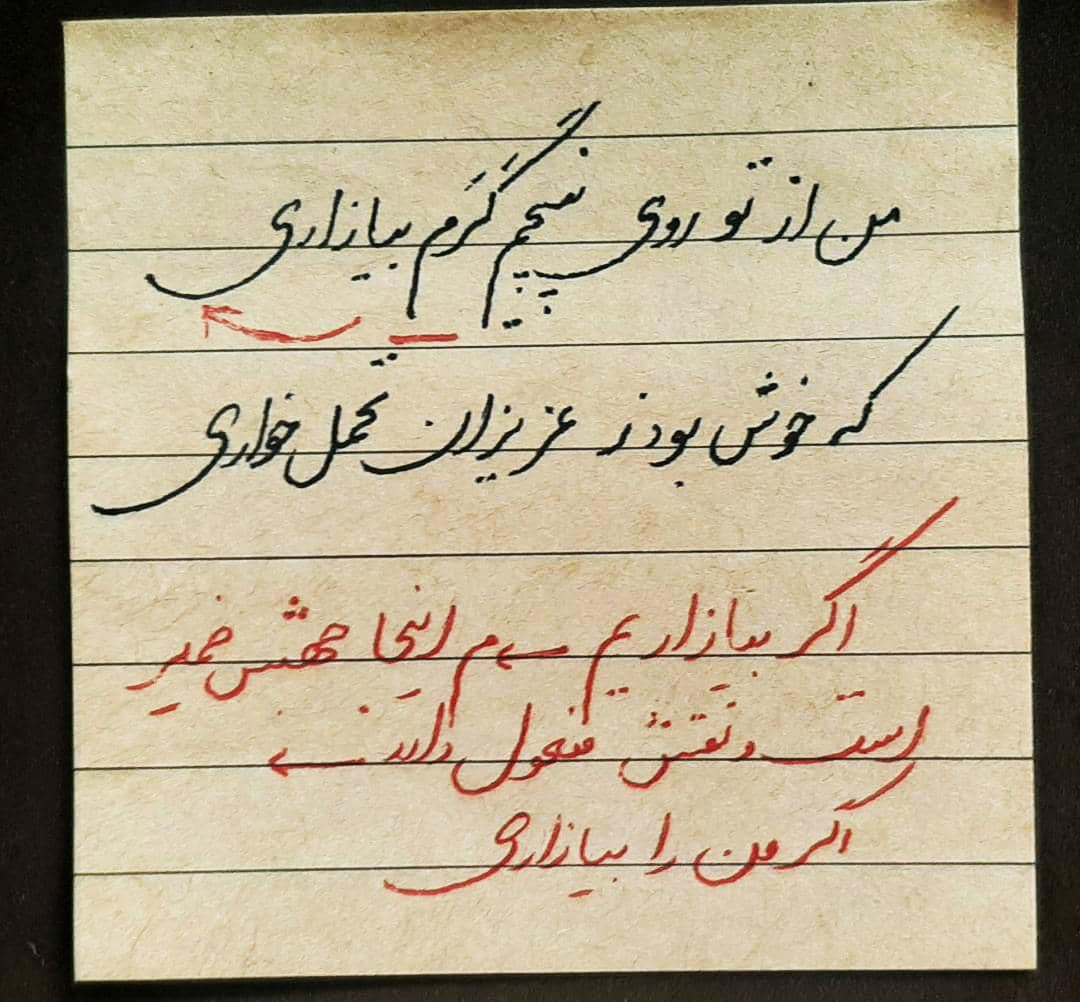 من از تو روی نپیچم گَرَم بیازاری
که خوش بود ز عزیزان تحمل خواری
اگر بیازاریم ← م اینجا جهش ضمیر
است و نقش مفعول دارد ←
اگر من را بیازاری